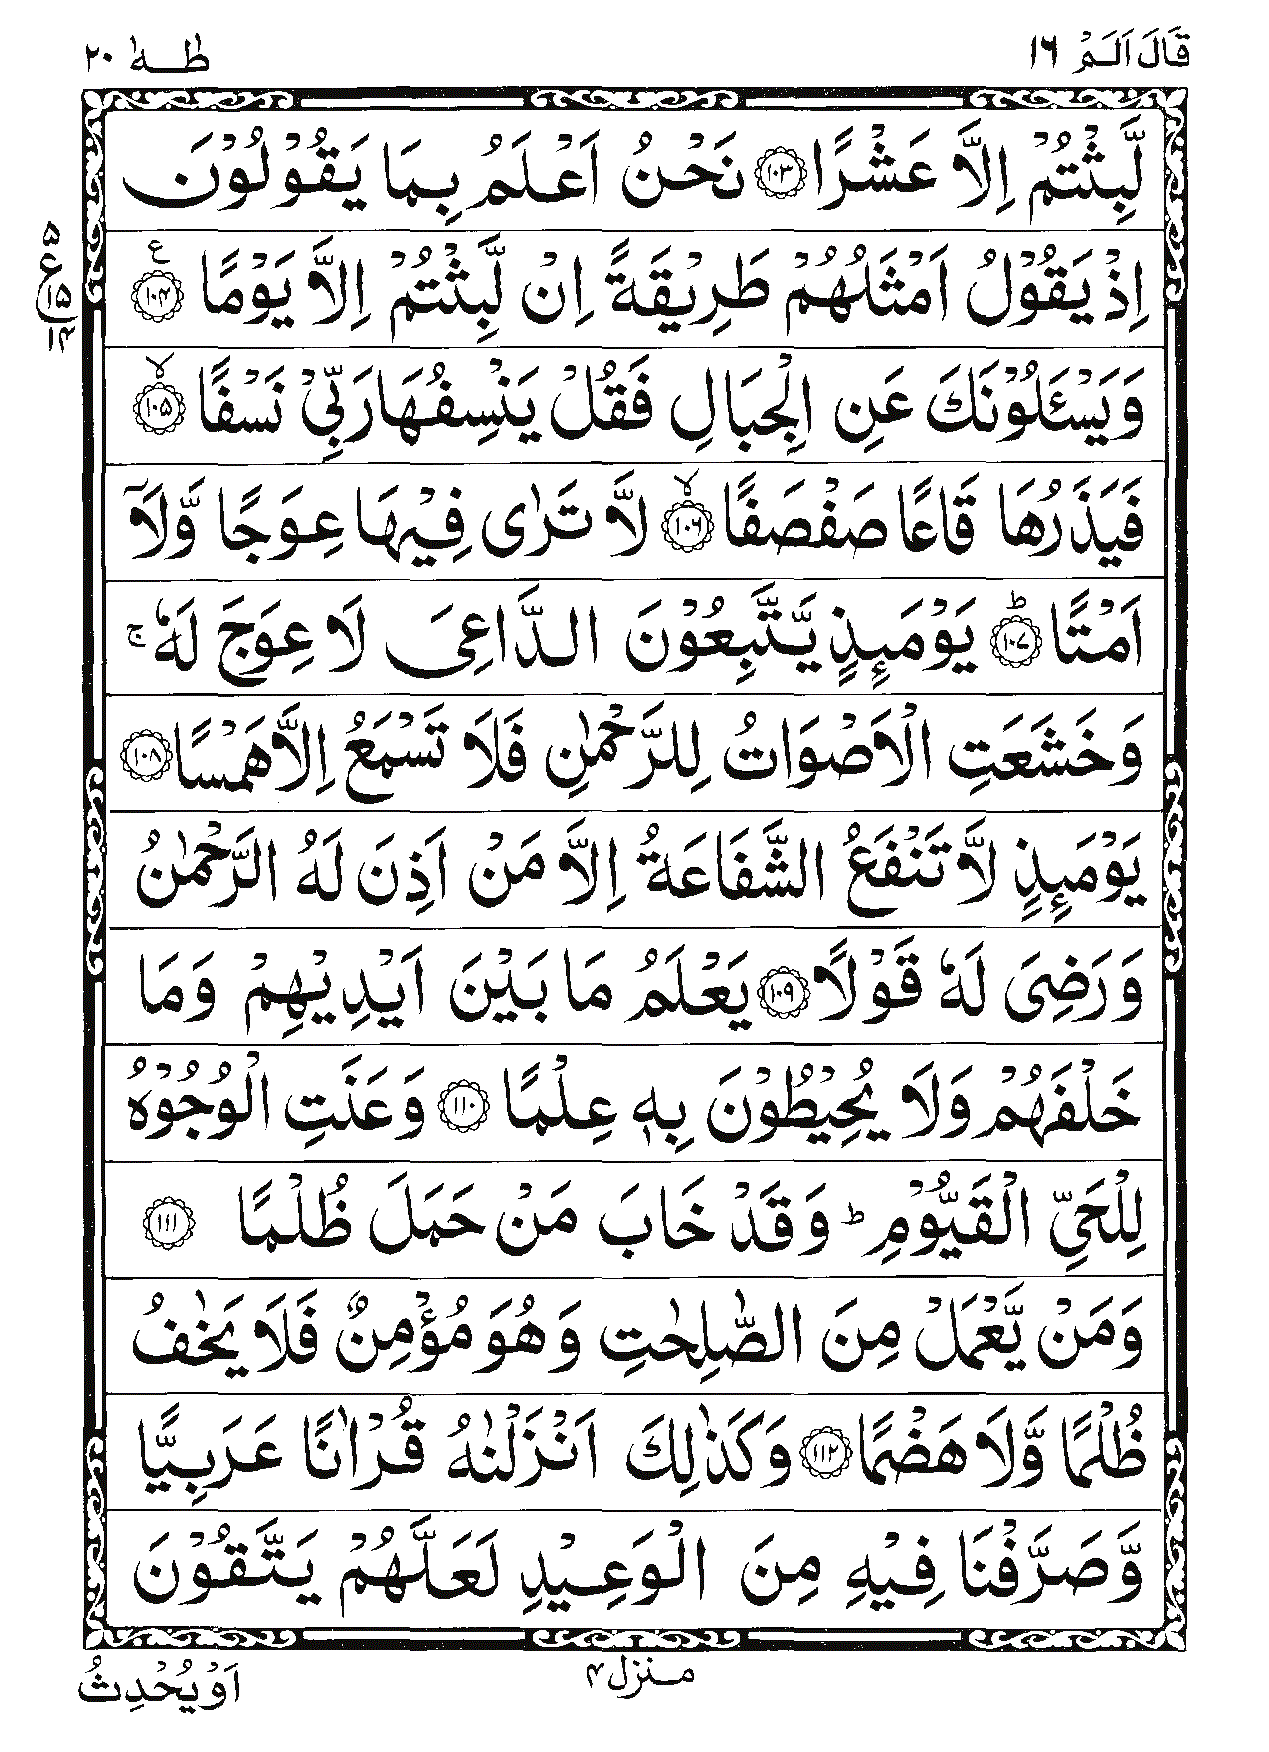 قَالَ اَلَمْ ١٦
طٰهٰ ٢٠
لَّبِثْتُمْ اِلَّا عَشْرًا ۝١٠٣ نَحْنُ اَعْلَمُ بِمَا يَقُوْلُوْنَ
اِذْ يَقُوْلُ اَمْثَلُهُمْ طَرِيْقَةً اِنْ لَّبِثْتُمْ اِلَّا يَوْمًا ۝١٠٤ ع
٥
ع ١٥
١٤
وَيَسْـَٔلُوْنَكَ عَنِ الْجِبَالِ فَقُلْ يَنْسِفُهَا رَبِّيْ نَسْفًا ۝١٠٥ ۙ
فَيَذَرُهَا قَاعًا صَفْصَفًا ۝١٠٦ ۙ لَّا تَرٰى فِيْهَا عِوَجًا وَّلَآ
اَمْتًا ۝١٠٧ ؕ يَوْمَىِٕذٍ يَّتَّبِعُوْنَ الدَّاعِيَ لَا عِوَجَ لَهٗ ۚ
وَخَشَعَتِ الْاَصْوَاتُ لِلرَّحْمٰنِ فَلَا تَسْمَعُ اِلَّا هَمْسًا ۝١٠٨
يَوْمَىِٕذٍ لَّا تَنْفَعُ الشَّفَاعَةُ اِلَّا مَنْ اَذِنَ لَهُ الرَّحْمٰنُ
وَرَضِيَ لَهٗ قَوْلًا ۝١٠٩ يَعْلَمُ مَا بَيْنَ اَيْدِيْهِمْ وَمَا
خَلْفَهُمْ وَلَا يُحِيْطُوْنَ بِهٖ عِلْمًا ۝١١٠ وَعَنَتِ الْوُجُوْهُ
لِلْحَيِّ الْقَيُّوْمِ ؕ وَقَدْ خَابَ مَنْ حَمَلَ ظُلْمًا ۝١١١
وَمَنْ يَّعْمَلْ مِنَ الصّٰلِحٰتِ وَهُوَ مُؤْمِنٌ فَلَا يَخٰفُ
ظُلْمًا وَّلَا هَضْمًا ۝١١٢ وَكَذٰلِكَ اَنْزَلْنٰهُ قُرْاٰنًا عَرَبِيًّا
وَّصَرَّفْنَا فِيْهِ مِنَ الْوَعِيْدِ لَعَلَّهُمْ يَتَّقُوْنَ
منزل ٤
اَوْ يُحْدِثُ